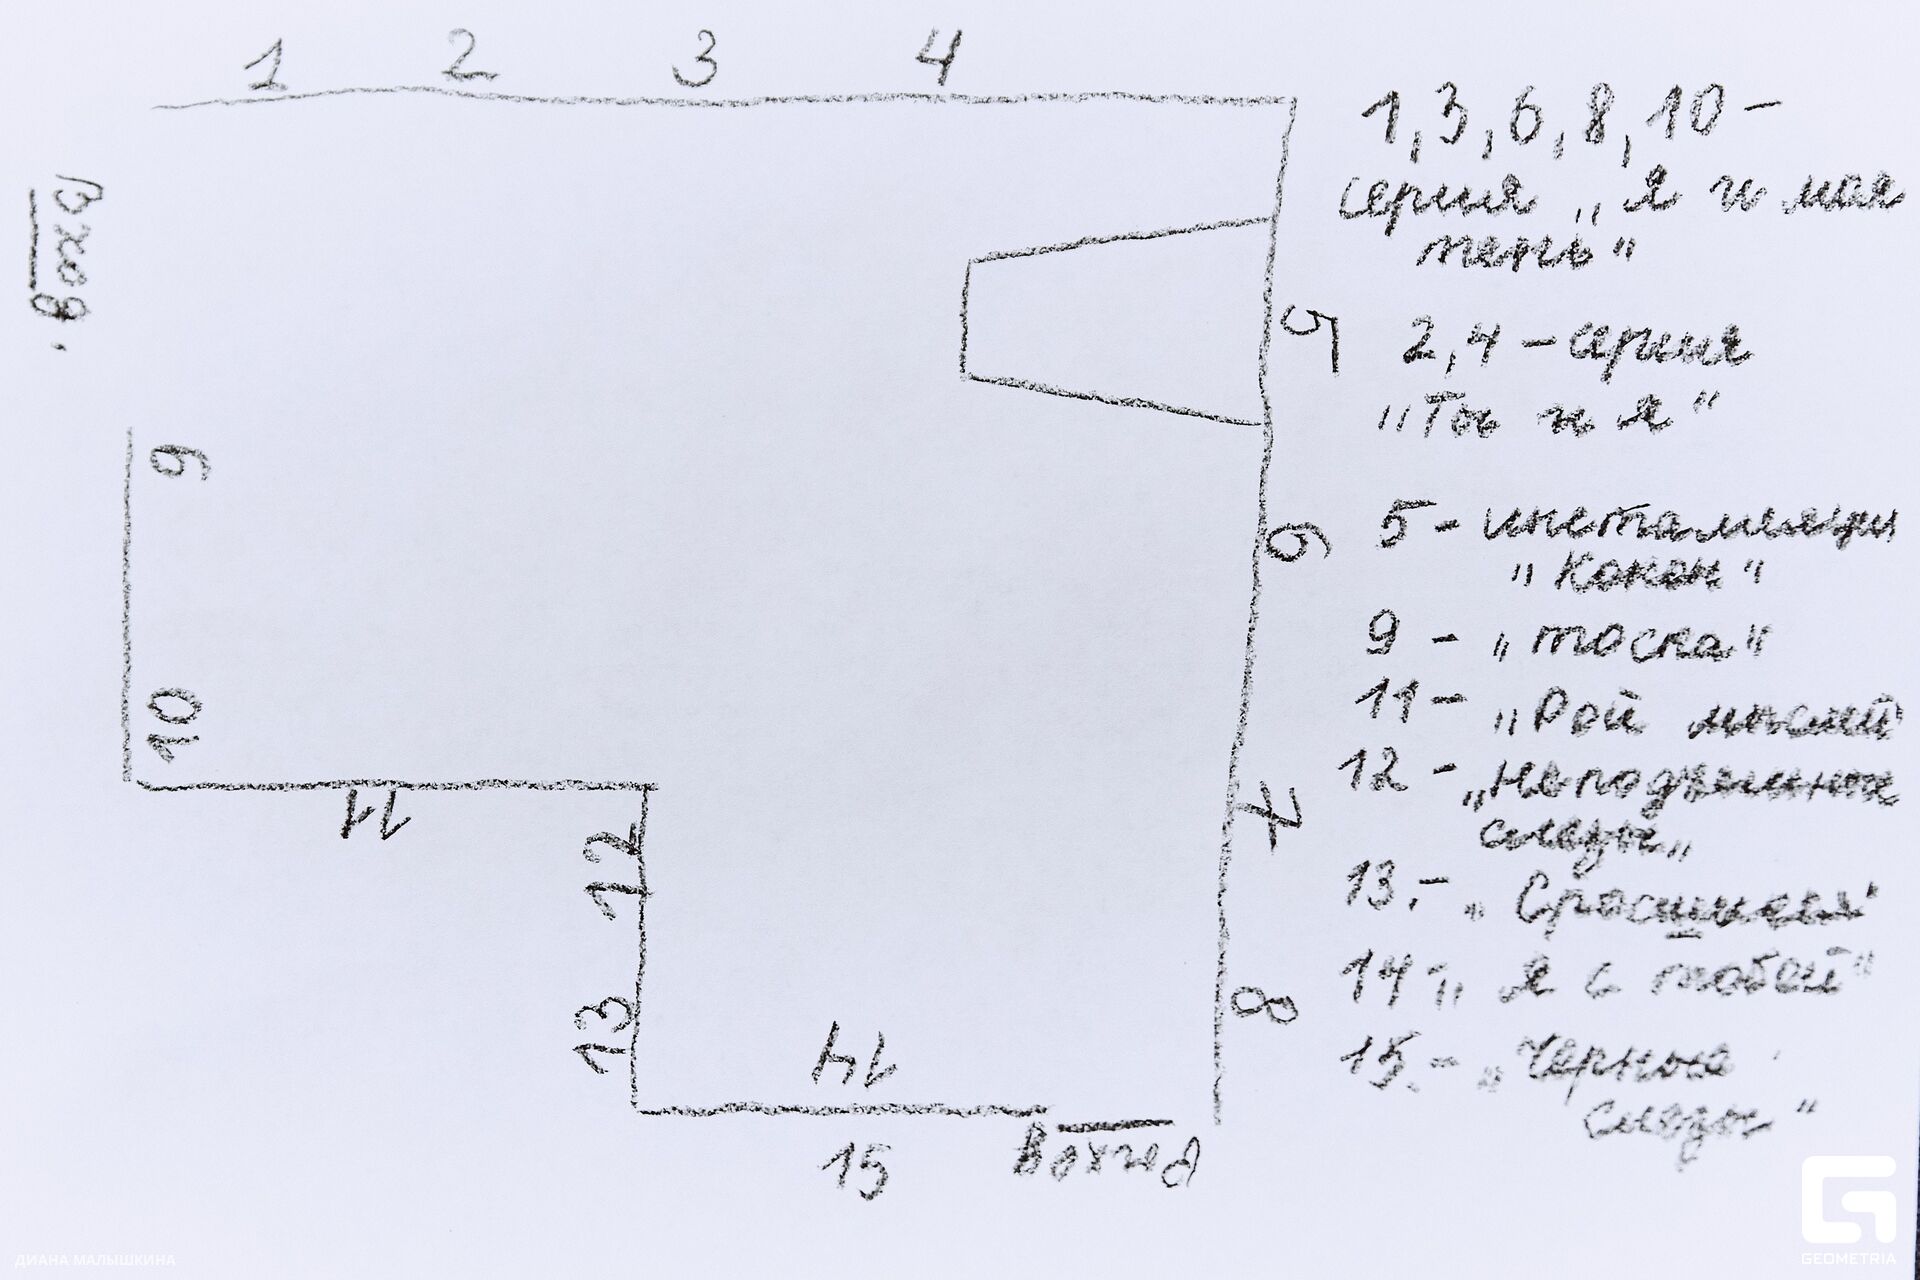 1 2 3 4
Вход.
5
6
7
8
9
10
11
12
13
14
15
Выход
1, 3, 6, 8, 10 –
серия „Я и моя
тень“
2, 4 – серия
"Ты и я"
5 - инсталляция
"Кокон"
9 - "тоска"
11 - "Рой мыслей
12 - „Неподвижные
следы„
13. - „Сросшиеся"
14 - „Я с тобой"
15. - „Черные
следы"
ДИАНА МАЛЫШКИНА
GEOMETRIA